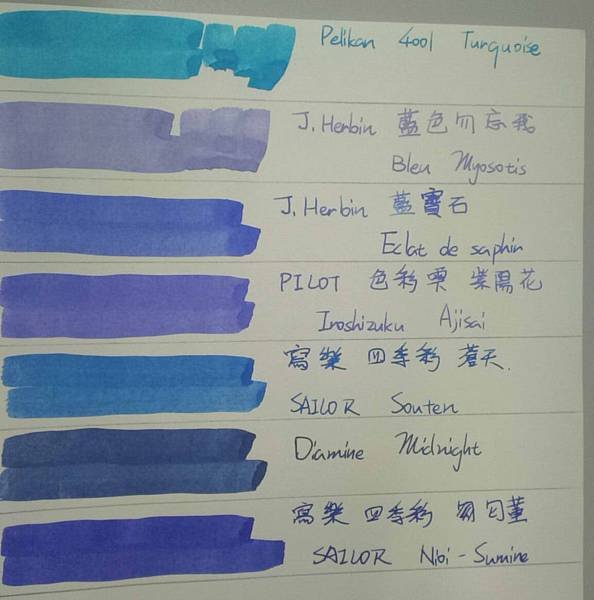 Pelikan 4001 Turquoise
J. Herbin 藍色勿忘我
Bleu Myosotis
J. Herbin 藍寶石
Eclat de saphir
PILOT 色彩雫 紫陽花
Iroshizuku Ajisai
寫樂 四季彩 蒼天
SAILOR Souten
Diamine Midnight
寫樂 四季彩 匂菫
SAILOR Nioi-Sumire